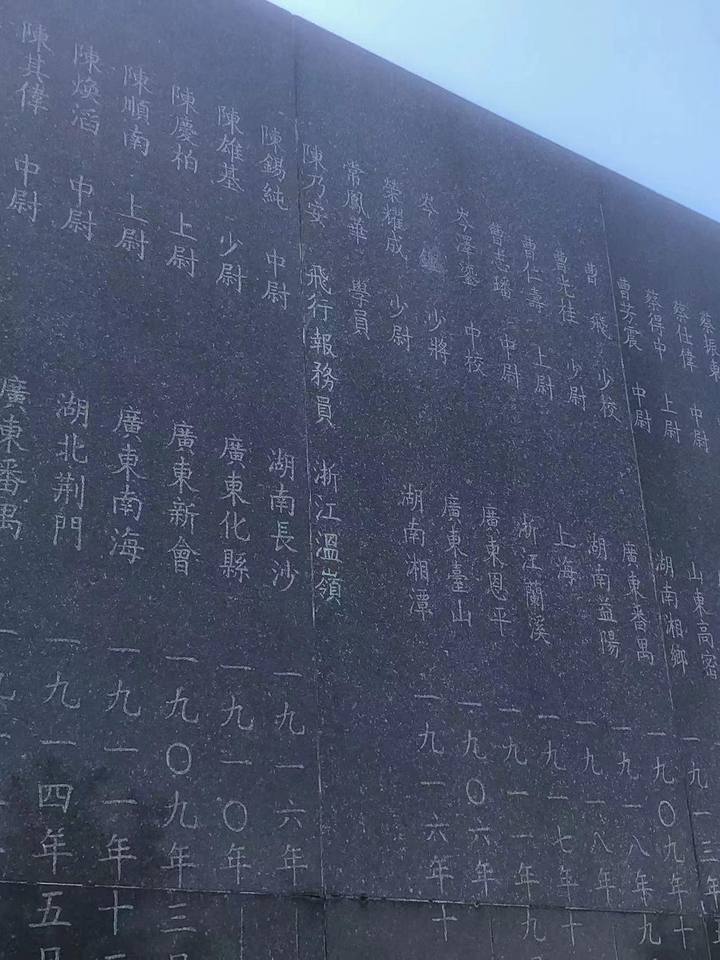 蔡振東
蔡任偉 中尉
蔡得中 上尉 山東高密
曹芳震 中尉 湖南湘鄉 一九一三年
曹飛 少校 廣東番禺 一九〇九年十
曹光桂 少尉 湖南益陽 一九一八年九
曹仁壽 上尉 上海 一九一八年
曹志璠 中尉 浙江蘭溪 一九一七年十
岑澤鎏 中校 廣東恩平 一九一一年九
岑 少將 廣東臺山 一九〇六年
榮耀成 少尉 湖南湘潭 一九一六年十
常鳳華 學員
陳乃安 飛行報務員 浙江溫嶺
陳錫純 中尉 湖南長沙 一九一六年
陳雄基 少尉 廣東化縣 一九一〇年
陳慶柏 上尉 廣東新會 一九〇九年三月
陳順南 上尉 廣東南海 一九一一年十
陳煥滔 中尉 湖北荊門 一九一四年五月
陳其偉 中尉 廣東番禺 一九